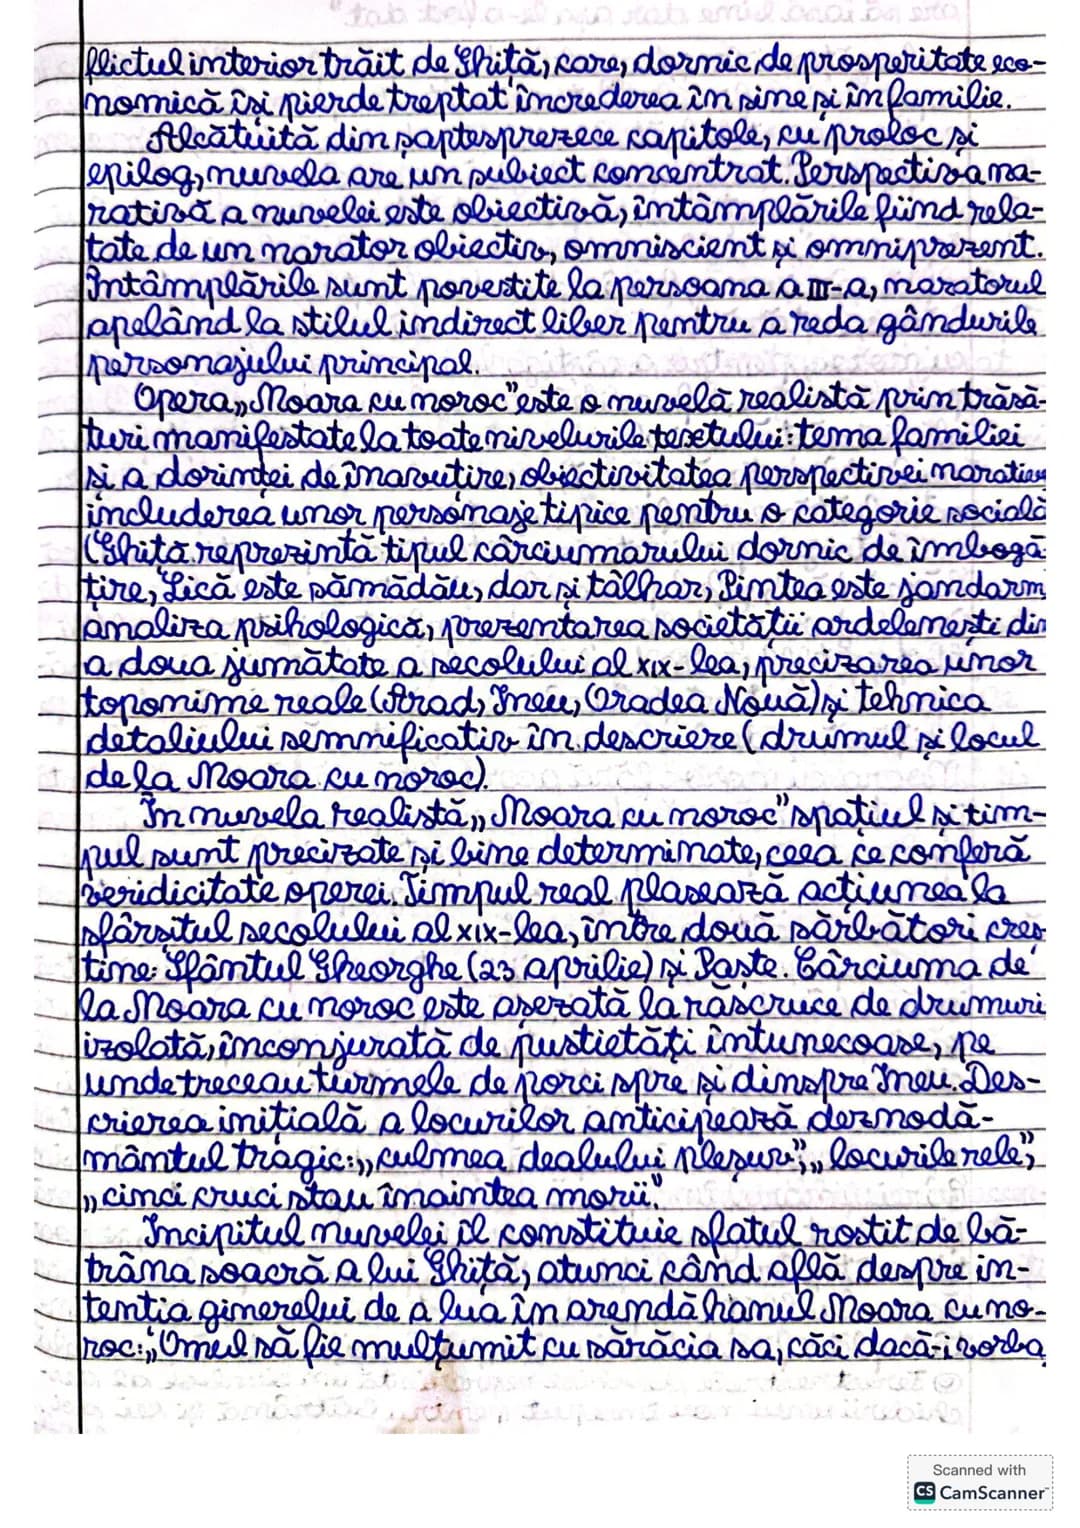 flictul interior trăit de Ghiță, care, dornic de prosperitate eco-
nomică își pierde treptat încrederea în sine și în familie.
Alcătuită din șaptesprezece capitole, cu proloc și
epilog, nuvela are un subiect concentrat. Perspectiva na-
rativă a nuvelei este obiectivă, întâmplările fiind rela-
tate de un narator obiectiv, omniscient și omniprezent.
Întâmplările sunt povestite la persoana a III-a, naratorul
apelând la stilul indirect liber pentru a reda gândurile
personajului principal.
Opera „Moara cu noroc" este o nuvelă realistă prin trăsă-
turi manifestate la toate nivelurile textului: tema familiei
și a dorinței de înavuțire, obiectivitatea perspectivei narative
includerea unor personaje tipice pentru o categorie socială
(Ghiță reprezintă tipul cârciumarului dornic de îmbogă
țire, Lică este sămădău, dar și tâlhar, Pintea este jandarm
analiza psihologică, prezentarea societății ardelenești din
a doua jumătate a secolului al XIX-lea, precizarea unor
toponime reale (Arad, Ineu, Oradea Nouă) și tehnica
detaliului semnificativ în descriere (drumul și locul
de la Moara cu noroc).
În nuvela realistă „Moara cu noroc" spațiul și tim-
pul sunt precizate și bine determinate, ceea ce conferă
veridicitate operei. Timpul real plasează acțiunea la
sfârșitul secolului al XIX-lea, între două sărbători creș
tine: Sfântul Gheorghe (23 aprilie) și Paște. Cârciuma de
la Moara cu noroc este așezată la răscruce de drumuri
izolată, înconjurată de pustietăți întunecoase, pe
unde treceau turmele de porci spre și dinspre Ineu. Des-
crierea inițială a locurilor anticipează deznodă-
mântul tragic: „culmea dealului pleșuv", „locurile rele",
„cinci cruci stau înaintea morii".
Incipitul nuvelei îl constituie sfatul rostit de bă-
trâna soacră a lui Ghiță, atunci când află despre in-
tenția ginerelui de a lua în arendă hanul Moara cu no-
roc: „Omul să fie mulțumit cu sărăcia sa, căci dacă-i vorba
Scanned with
CS CamScanner